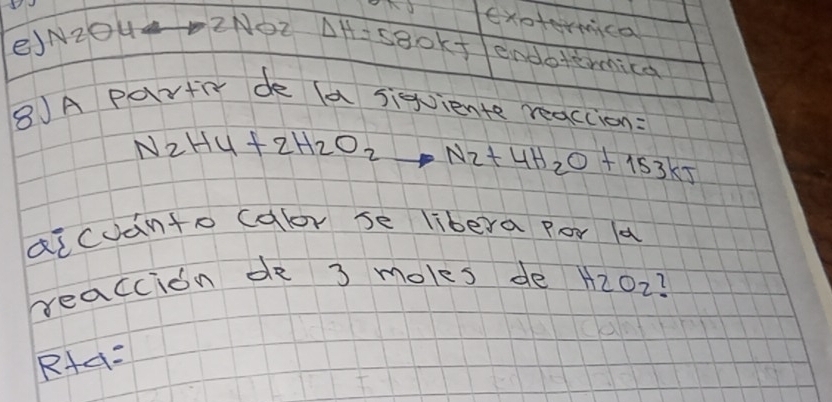 exotermica
e) N2O4 ⇄ 2NO2 ΔH=580kJ endotérmica
8) A partir de la siguiente reaccion:
N2H4 + 2H2O2 → N2 + 4H2O + 153kJ
a¿cuánto calor se libera por la
reacción de 3 moles de H2O2?
Rta=